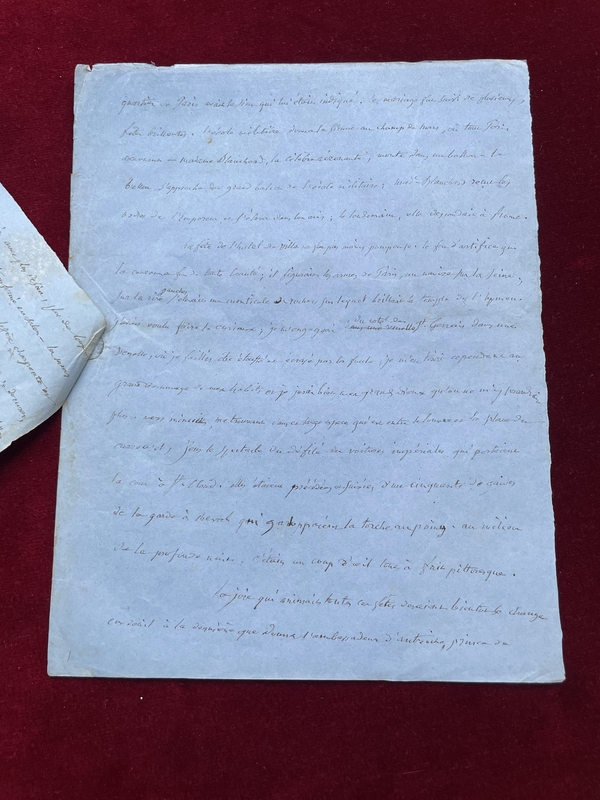 quartier de Paris avait le lieu qui lui était indiqué. Ce mariage fut suivi de plusieurs
fêtes brillantes. l'école militaire donna la sienne au champ de mars, où tout Paris
madame Blanchard, la célèbre aéronaute, monta dans un ballon. le
ballon s'approcha du grand balcon de l'école militaire; mad. Blanchard reçut les
ordres de l'empereur et dans les airs; le lendemain, elle descendait à
la fête de l'hôtel de ville ne fut pas moins pompeuse. le feu d'artifice qui
la couronna fut de toute beauté; il figurait les armes de Paris, un vaisseau sur la Seine;
sur la rive gauche s'élevait un monticule de rochers sur lequel brillait le temple de l'hymen.
j'avais voulu faire le curieux; je m'engageai du côté de St. Gervais dans une
venelle, où je faillis être étouffé ou écrasé par la foule; je m'en tirai cependant au
grand dommage de mes habits et je jurai bien aux grands dieux qu'on ne m'y prendrait
plus. vers minuit, me trouvant dans ce large espace qui est entre le Louvre et la place du
carrousel, je vis le spectacle du défilé des voitures impériales qui portaient
la cour à St. Cloud: elles étaient précédées et suivies d'une cinquantaine de guides
de la garde à cheval qui galoppaient la torche au poing. au milieu
de la profonde nuit, c'était un coup d'œil tout à fait pittoresque.
La joie qui animait toutes ces fêtes devait bientôt se changer
en deuil à la dernière que donna l'ambassadeur d'autriche, prince de